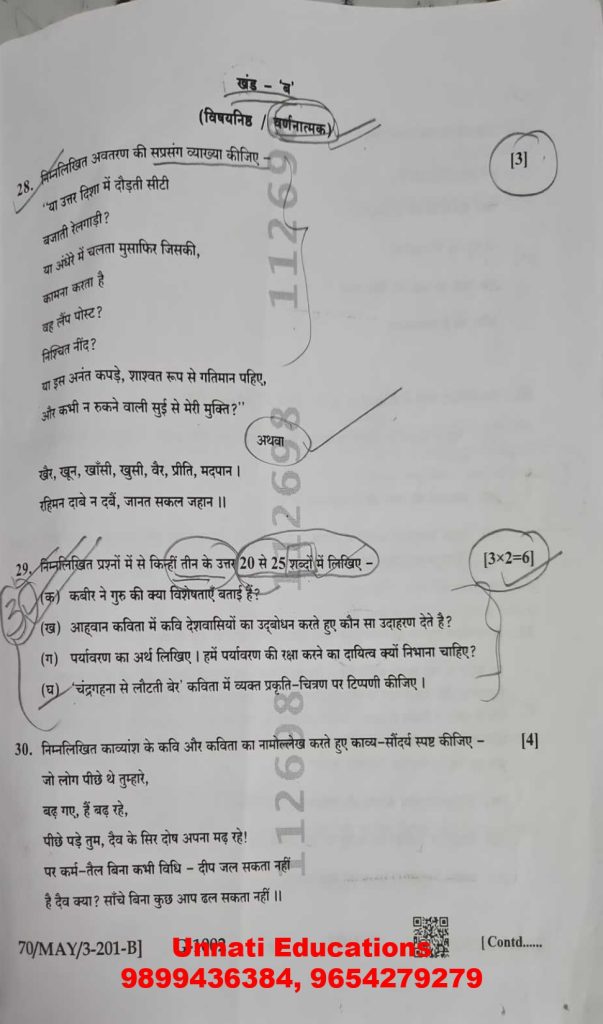 खंड – 'ब'
(विषयनिष्ठ / वर्णनात्मक)
28. निम्नलिखित अवतरण की सप्रसंग व्याख्या कीजिए – [3]
"या उत्तर दिशा में दौड़ती सीटी
बजाती रेलगाड़ी?
या अंधेरे में चलता मुसाफिर जिसकी,
कामना करता है
वह लैंप पोस्ट?
निश्चित नींद?
या इस अनंत कपड़े, शाश्वत रूप से गतिमान पहिए,
और कभी न रुकने वाली सुई से मेरी मुक्ति?"
अथवा
खैर, खून, खाँसी, खुसी, वैर, प्रीति, मदपान ।
रहिमन दाबे न दबैं, जानत सकल जहान ।।
29. निम्नलिखित प्रश्नों में से किन्हीं तीन के उत्तर 20 से 25 शब्दों में लिखिए – [3×2=6]
(क) कबीर ने गुरु की क्या विशेषताएँ बताई हैं?
(ख) आह्वान कविता में कवि देशवासियों का उद्बोधन करते हुए कौन सा उदाहरण देते है?
(ग) पर्यावरण का अर्थ लिखिए । हमें पर्यावरण की रक्षा करने का दायित्व क्यों निभाना चाहिए?
(घ) 'चंद्रगहना से लौटती बेर' कविता में व्यक्त प्रकृति–चित्रण पर टिप्पणी कीजिए ।
30. निम्नलिखित काव्यांश के कवि और कविता का नामोल्लेख करते हुए काव्य–सौंदर्य स्पष्ट कीजिए – [4]
जो लोग पीछे थे तुम्हारे,
बढ़ गए, हैं बढ़ रहे,
पीछे पड़े तुम, दैव के सिर दोष अपना मढ़ रहे!
पर कर्म–तैल बिना कभी विधि – दीप जल सकता नहीं
है दैव क्या? साँचे बिना कुछ आप ढल सकता नहीं ।।
70/MAY/3-201-B] [Contd......
Unnati Educations
9899436384, 9654279279
112698 112698 112698